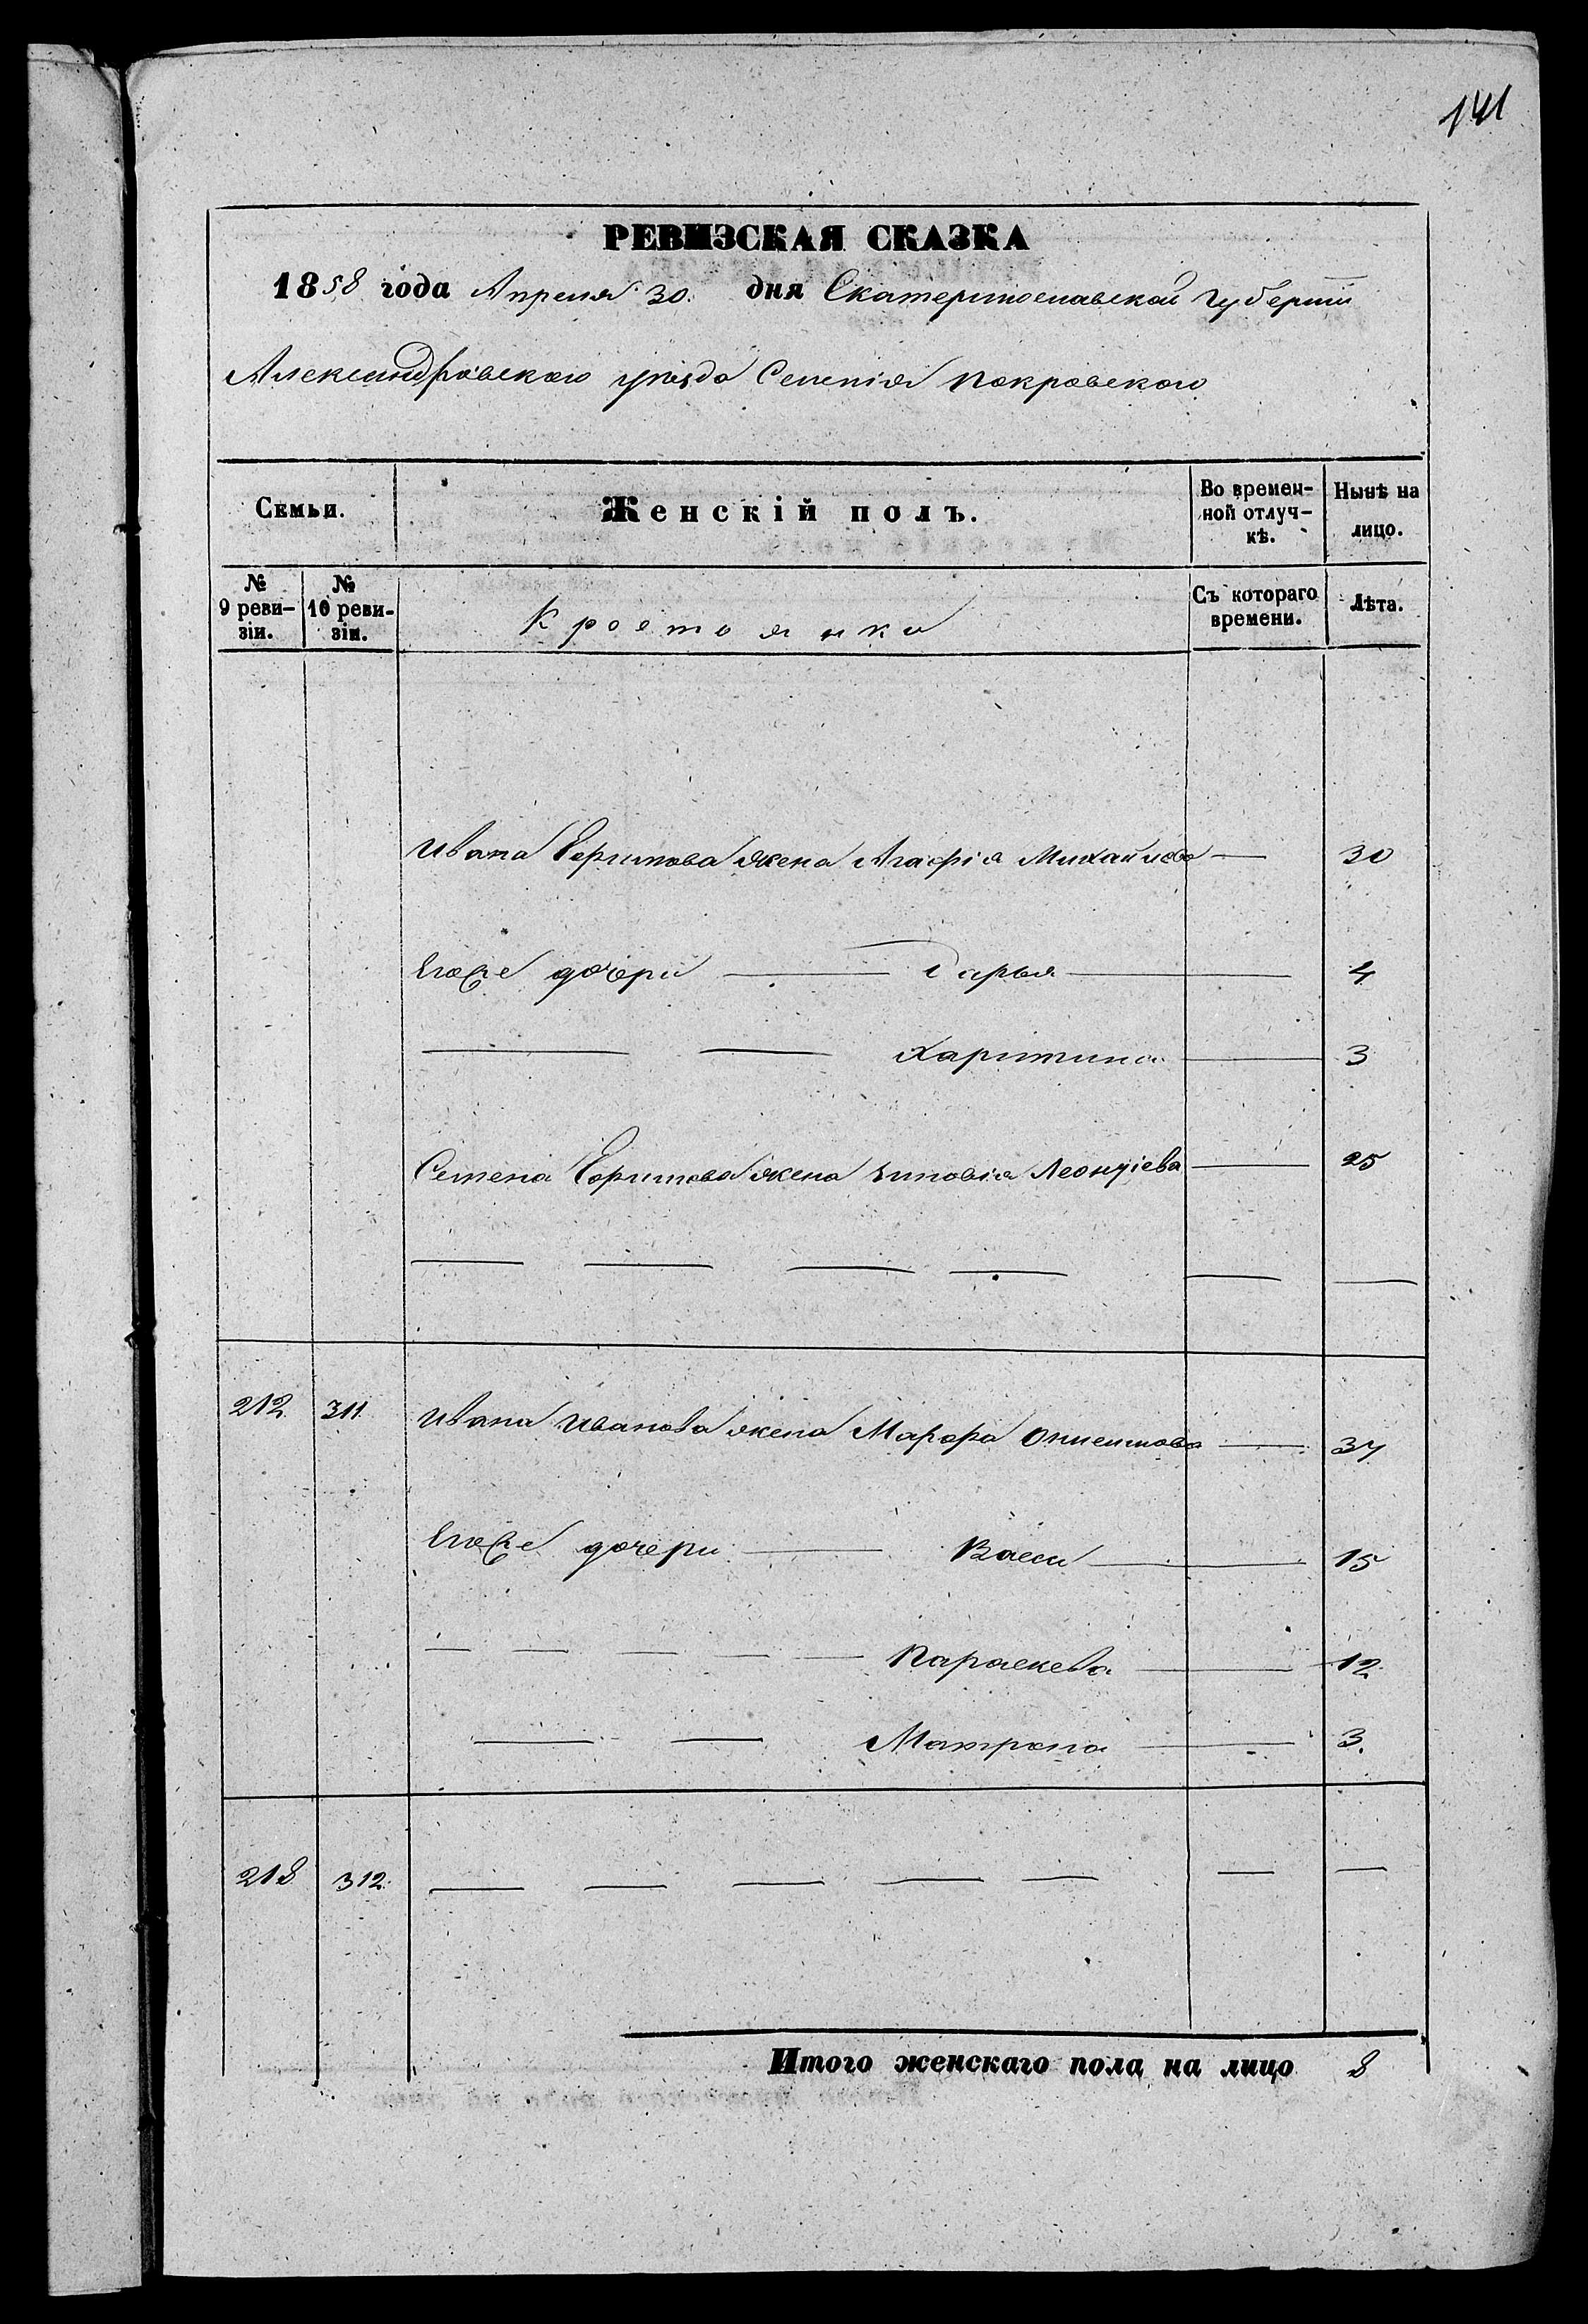 141
РЕВИЗСКАЯ СКАЗКА
1858 года Апреля 30. дня Екатеринославской губернии
Александровского уезда Селения Покровского
Семьи.
Женскій полъ.
Во времен-
ной отлуч-
кѣ.
Нынѣ на
лицо.
№
9 реви-
зіи.
№
10 реви-
зіи.
Крестьянки
Съ котораго
времени.
Лѣта.
Ивана жена Агафія Михайлова — 30
Егоже дочери — Дарья — 4
— — Харитина — 3
Семена жена Зиновія Леонтіева — 25
— — — — — —
212. 311. Ивана Иванова жена Марфа Онисимова — 37
Егоже дочери — Васси — 15
— — — — — Параскева — 12.
— — Матрона — 3.
218 312. — — — — — — —
Итого женскаго пола на лицо 8